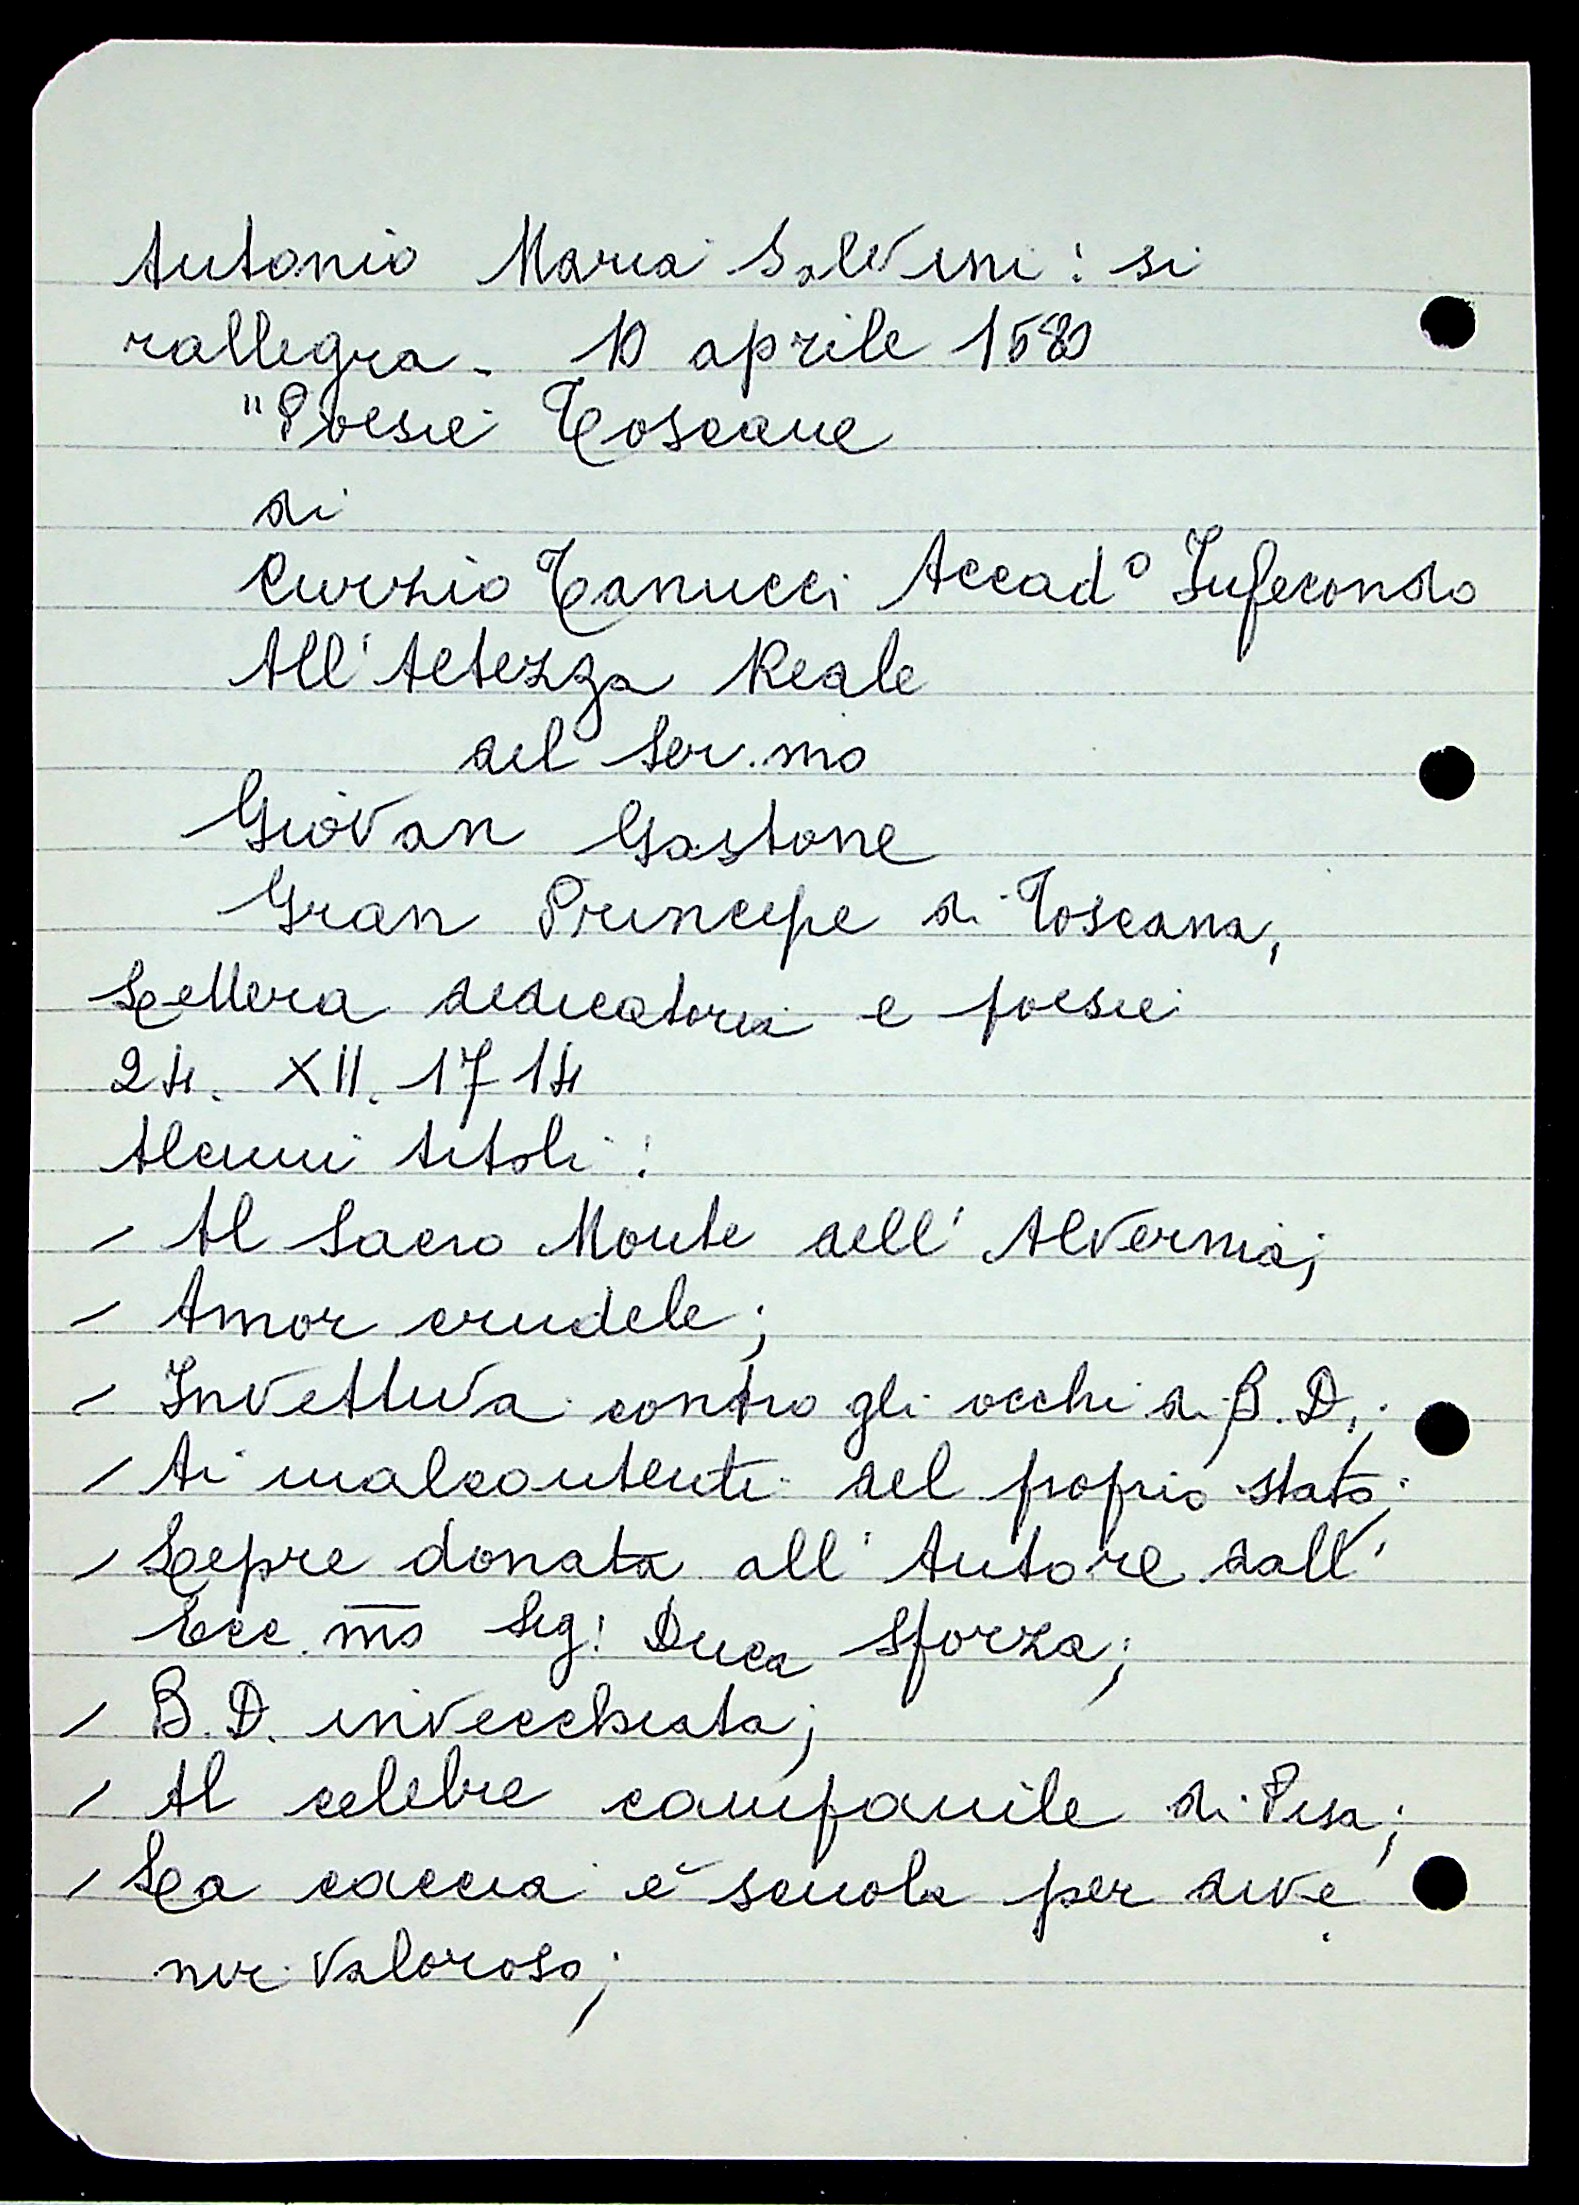 Antonio Maria Salvini: si
rallegra - 10 aprile 1580
"Poesie Toscane
di
Curzio Tanucci Accad° Infecondo
All'Altezza Reale
del Ser.mo
Giovan Gastone
Gran Principe di Toscana,
Lettera dedicatoria e poesie
24. XII. 1714
Alcuni titoli:
- Al Sacro Monte dell'Alvernia;
- Amor crudele;
- Invettiva contro gli occhi di B. D.;
- Ai malcontenti del proprio stato;
- Lepre donata all'Autore dall'
Ecc. mo Sig: Duca Sforza;
- B. D. invecchiata;
- Al celebre campanile di Pisa;
- La caccia è scuola per dive
nir valoroso;